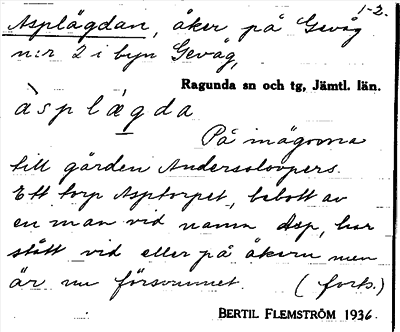 1-2.
Asplägdan, åker på Gevåg
n:r 2 i byn Gevåg,
Ragunda sn och tg, Jämtl. län.
àsplæ̀gda
På inägorna
till gården
Ett torp Asptorpet, bebott av
en man vid namn Asp, har
stått vid eller på åkern men
är nu försvunnet. (forts.)
BERTIL FLEMSTRÖM 1936.